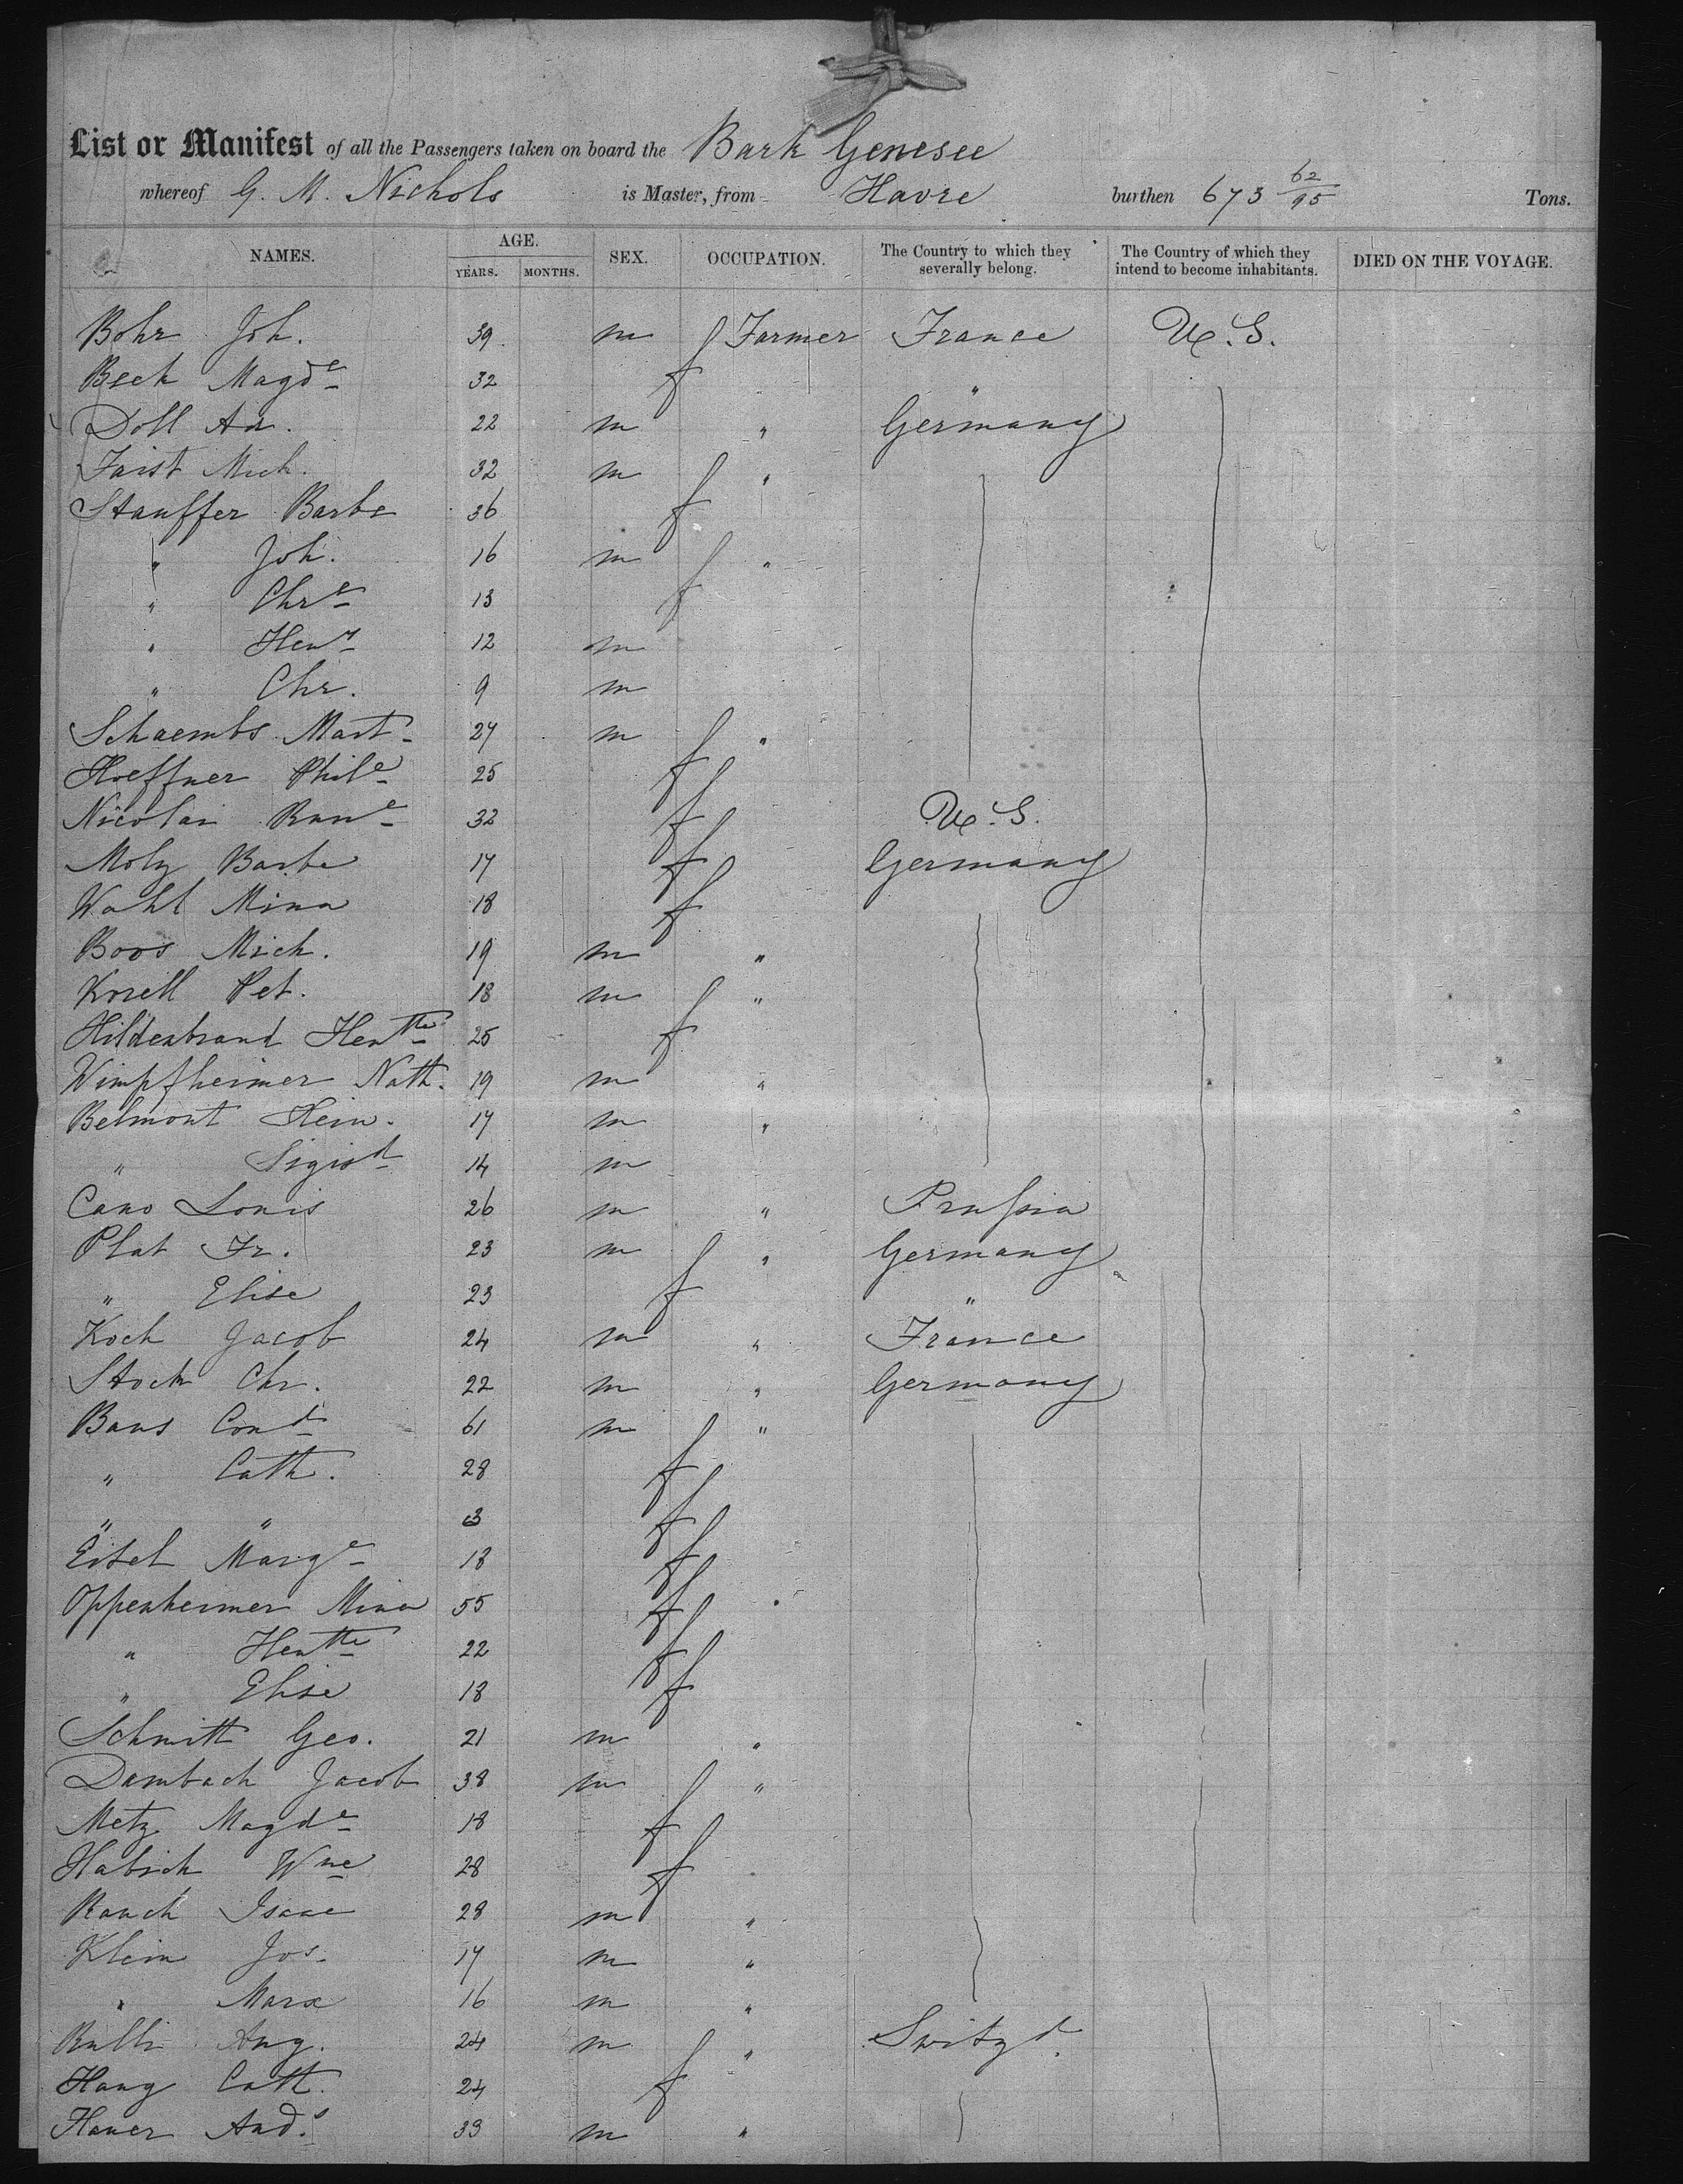 List or Manifest of all the Passengers taken on board the Bark Genesee
whereof G. M. Nichols is Master, from Havre burthen 673 62/95 Tons.
NAMES. AGE. YEARS. MONTHS. SEX. OCCUPATION. The Country to which they severally belong. The Country of which they intend to become inhabitants. DIED ON THE VOYAGE.
Bohr Joh. 39 m Farmer France U.S.
Beck Magde 32 f "
Doll Ad. 22 m " Germany
Faist Mich. 32 m "
Stauffer Barbe 36 f
" Joh. 16 m "
" Chre 13 f
" Heny 12 m
" Chr. 9 m
Schaembs Mart 27 m "
Hoeffner Phile 25 f
Nicolai 32 f U.S.
Molz Barbe 17 f Germany
Wahl Mina 18 f
Boos Mich. 19 m "
Korell Pet. 18 m "
Hildenbrand Hentte 25 f
Wimpfheimer Nath. 19 m "
Belmont Hein. 17 m "
" Sigisd 14 m
Cano Louis 26 m " Prussia
Plat Fr. 23 m " Germany
" Elise 23 f "
Koch Jacob 24 m " France
Stock Chr. 22 m " Germany
Baus Cond 61 m "
" Cath. 28 f
" " 3 f
Eitel Marge 18 f
Oppenheimer Mina 55 f
" Hentte 22 f
" Elise 18 f
Schmitt Geo. 21 m "
Dambach Jacob 38 m "
Metz Magde 18 f
Habich Wne 28 f
Rauch Isaac 28 m "
Klein Jos. 17 m "
" Marx 16 m "
Rulli Aug. 24 m " Switzd.
Haug Cath. 24 f
Hauer Ands 33 m "